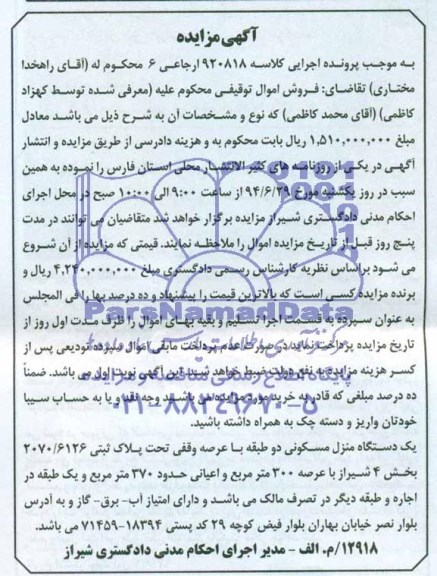 آگهی مزایده
به موجب پرونده اجرایی کلاسه ۹۲۰۸۱۸ ارجاعی ۶ محکوم له (آقای راهخدا
مختاری) تقاضای: فروش اموال توقیفی محکوم علیه (معرفی شده توسط کهزاد
کاظمی) (آقای محمد کاظمی) که نوع و مشخصات آن به شرح ذیل می باشد معادل
مبلغ ۱,۵۱۰,۰۰۰,۰۰۰ ریال بابت محکوم به و هزینه دادرسی از طریق مزایده و انتشار
آگهی در یکی از روزنامه های کثیر الانتشار محلی استان فارس را نموده به همین
سبب در روز یکشنبه مورخ ۹۴/۶/۲۹ از ساعت ۹:۰۰ الی ۱۰:۰۰ صبح در محل اجرای
احکام مدنی دادگستری شیراز مزایده برگزار خواهد شد متقاضیان می توانند در مدت
پنج روز قبل از تاریخ مزایده اموال را ملاحظه نمایند. قیمتی که مزایده از آن شروع
می شود براساس نظریه کارشناس رسمی دادگستری مبلغ ۴,۲۴۰,۰۰۰,۰۰۰ ریال و
برنده مزایده کسی است که بالاترین قیمت را پیشنهاد و ده درصد بها را فی المجلس
به عنوان سپرده به قسمت اجرا تسلیم و بقیه بهای اموال را ظرف مدت اول روز از
تاریخ مزایده پرداخت نماید در صورت عدم پرداخت مابقی اموال سپرده تودیعی پس از
کسر هزینه مزایده به نفع دولت ضبط خواهد شد. این آگهی نوبت اول می باشد. ضمناً
ده درصد مبلغی که قادر به خرید مورد مزایده می باشید وجه نقد و یا به حساب سیبا
خودتان واریز و دسته چک به همراه داشته باشید.
یک دستگاه منزل مسکونی دو طبقه با عرصه وقفی تحت پلاک ثبتی ۲۰۷۰/۶۱۲۶
بخش ۴ شیراز با عرصه ۳۰۰ متر مربع و اعیانی حدود ۳۷۰ متر مربع و یک طبقه در
اجاره و طبقه دیگر در تصرف مالک می باشد و دارای امتیاز آب- برق- گاز و به آدرس
بلوار نصر خیابان بهاران بلوار فیض کوچه ۲۹ کد پستی ۱۸۳۹۴-۷۱۴۵۹ می باشد.
۱۲۹۱۸/م. الف - مدیر اجرای احکام مدنی دادگستری شیراز
ParsNamadData
پایگاه اطلاع رسانی مناقصه و مزایده
۰۲۱-۸۸۳۴۹۶۷۰-۵